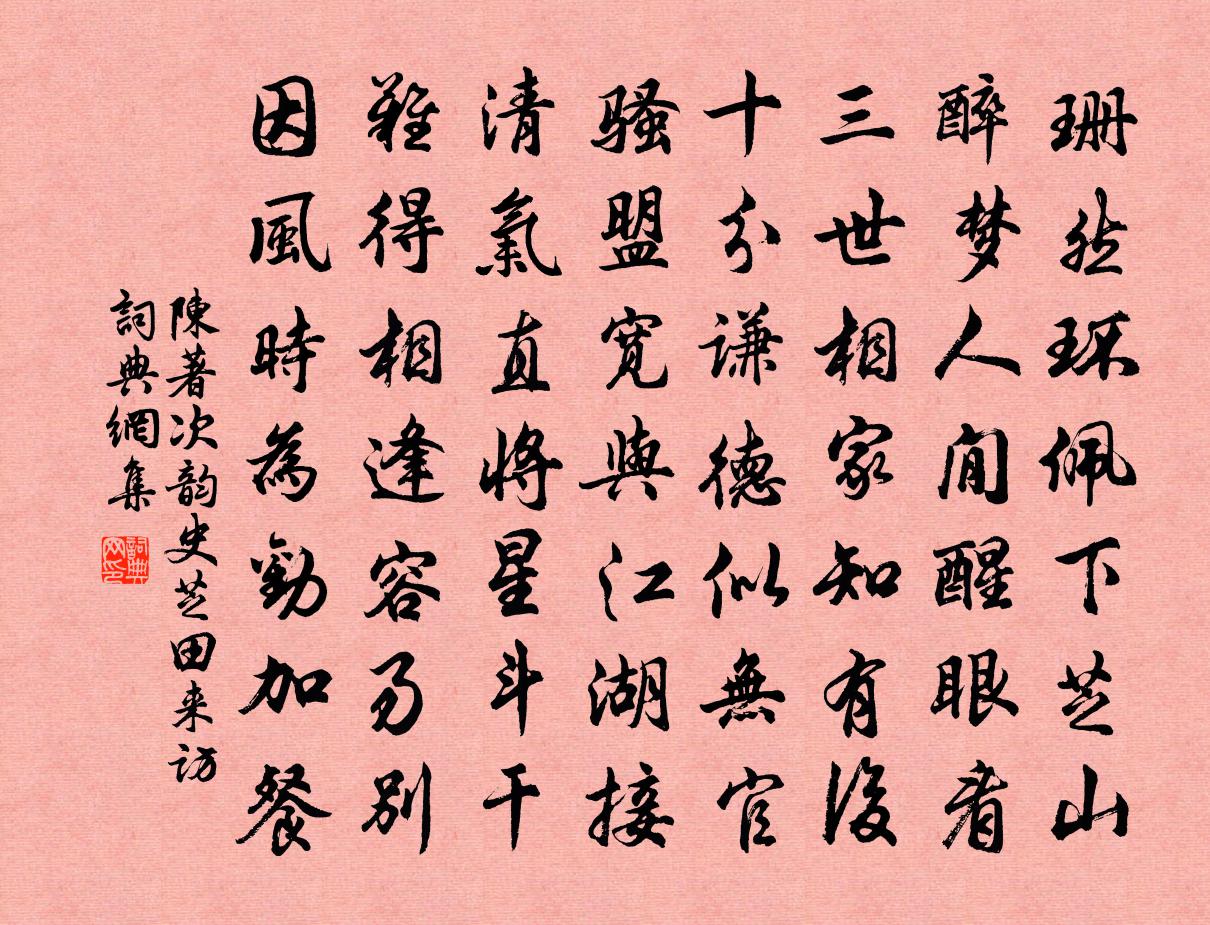 珊然环佩下芝山
醉梦人间醒眼看
三世相家知有後
十分谦德似無官
骚盟宽與江湖接
清氣直将星斗干
難得相逢容易别
因風時為勸加餐
陳著次韵史芝田来访
詞典網集
詞典网印